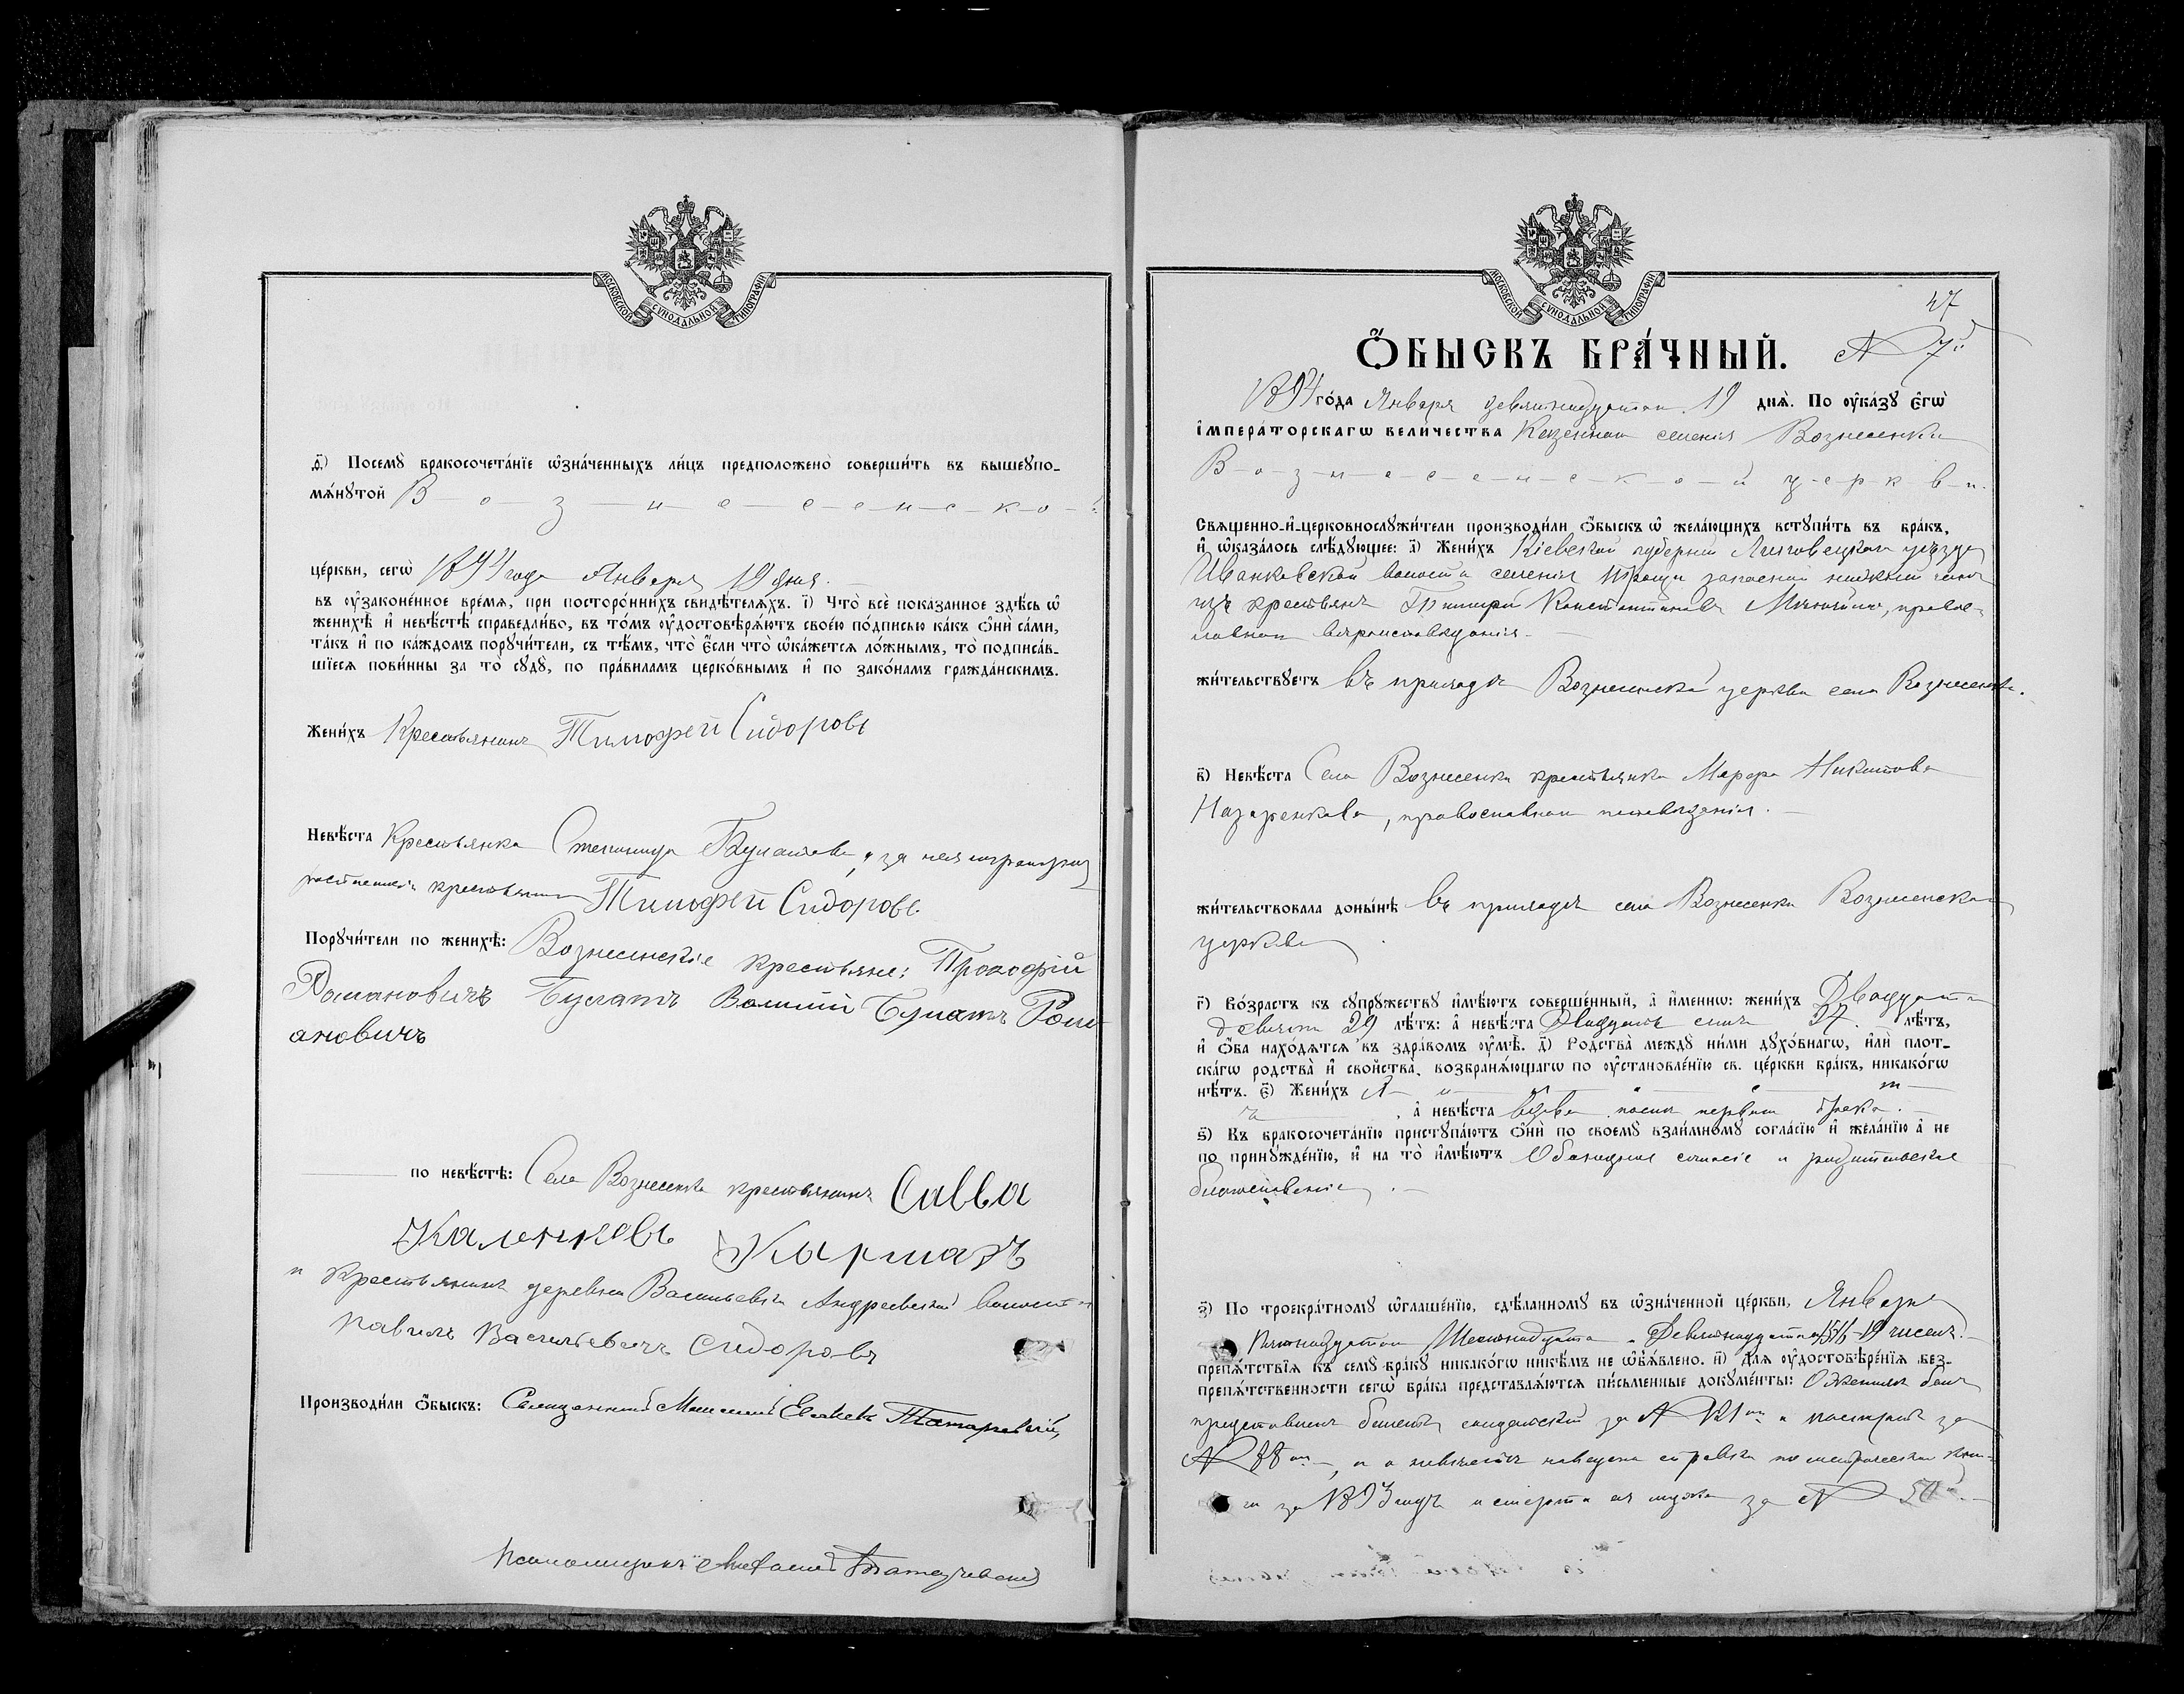 МОСКОВСКОЙ СѴНОДАЛЬНОЙ ТИПОГРАФІИ
д҃) Посемꙋ бракосочета́нїе ѡ҆зна́ченныхъ ли́цъ предположено̀ соверши́ть въ вышеꙋпо-
мѧ́нꙋтой В-о-з-н-е-с-е-н-с-к-о-й
це́ркви, сегѡ̀ 1894 года Января 19 дня.
въ ᲂу҆законе́нное вре́мѧ, при посторо́ннихъ свидѣ́телѧхъ. і҃) Что̀ всѐ пока́занное здѣ́сь ѡ҆
женихѣ̀ и҆ невѣ́стѣ справедли́во, въ то́мъ ᲂу҆достовѣрѧ́ютъ своє́ю по́дписью ка́къ ѻ҆нѝ са́ми,
та́къ и҆ по ка́ждомъ порꙋчи́тели, съ тѣ́мъ, что̀ є҆́сли что̀ ѡ҆ка́жетсѧ ло́жнымъ, то̀ подписа́в-
шїесѧ пови́нны за то̀ сꙋдꙋ̀, по пра́виламъ церко́внымъ и҆ по зако́намъ гражда́нскимъ.
Жени́хъ Крестьянинъ Тимофей Сидоровъ
Невѣ́ста Крестьянка
крестьянинъ Тимофей Сидоровъ.
Порꙋчи́тели по женихѣ̀: Вознесенскіе крестьяне: Прокофій
Романовичъ Булатъ Булатъ Ром-
ановичъ
по невѣ́стѣ: Села Вознесенки крестьянинъ Савва
Каленковъ
и Крестьянинъ деревни Васильевки Андреевской волости
Павилъ Васильевичъ Сидоровъ
Производи́ли ѻ҆́быскъ: Священникъ
Псаломщикъ
МОСКОВСКОЙ СѴНОДАЛЬНОЙ ТИПОГРАФІИ
47
Ѻ҆́БЫСКЪ БРА́ЧНЫЙ. № 7й
1894 го́да Января девятнадцатаго 19 днѧ̀. По ᲂу҆ка́зꙋ є҆гѡ̀
і҆мпера́торскагѡ вели́чества Казеннаго селенія Вознесенки
В-о-з-н-е-с-е-н-с-к-о-й ц-е-р-к-в-и.
Свѧще́нно-и҆-церковнослꙋжи́тели производи́ли ѻ҆́быскъ ѡ҆ жела́ющихъ встꙋпи́ть въ бра́къ,
и҆ ѡ҆каза́лось слѣ́дꙋющее: а҃) Жени́хъ Кіевской губерніи Липовецкаго уѣзда
Иванковской волости селенія запасный нижній чинъ
изъ крестьянъ Тимофей Константиновъ правос-
лавнаго вѣроисповѣданія.
жи́тельствꙋетъ въ приходѣ Вознесенской церкви села Вознесенки.
в҃) Невѣ́ста Села Вознесенки крестьянка Марфа Никитова
Назаренкова, православнаго исповѣданія.
жи́тельствовала доны́нѣ въ приходѣ села Вознесенки Вознесенской
церкви
г҃) Во́зрастъ къ сꙋпрꙋ́жествꙋ и҆мѣ́ютъ соверше́нный, а҆ и҆́менно: жени́хъ Двадцати
девяти 29 лѣ́тъ: а҆ невѣ́ста Двадцати семи 27. лѣ́тъ,
и҆ ѻ҆́ба нахо́дѧтсѧ въ здра́вомъ ᲂу҆мѣ̀. д҃) Родства̀ междꙋ ни́ми дꙋхо́внагѡ, и҆лѝ плот-
ска́гѡ родства̀ и҆ свойства̀, возбранѧ́ющагѡ по ᲂу҆становле́нїю св. це́ркви бра́къ, никако́гѡ
нѣ́тъ. є҃) Жени́хъ
, а҆ невѣ́ста вдова послѣ перваго брака.
ѕ҃) Къ бракосочета́нїю пристꙋпа́ютъ ѻ҆нѝ по своемꙋ̀ взаи́мномꙋ согла́сїю и҆ жела́нїю а҆ не
по принꙋжде́нїю, и҆ на то̀ и҆мѣ́ютъ Обоюдное согласіе и родительское
благословеніе.
з҃) По троекра́тномꙋ ѡ҆глаше́нїю, сдѣ́ланномꙋ въ ѡ҆зна́ченной це́ркви, Января
Пятнадцатаго Шестнадцатаго Девятнадцатаго чиселъ.
препѧ́тствїѧ къ семꙋ̀ бра́кꙋ никако́гѡ никѣ́мъ не ѡ҆б̾ѧ́влено. и҃) Длѧ ᲂу҆достовѣре́нїѧ без-
препѧ́тственности сегѡ̀ бра́ка представлѧ́ютсѧ пи́сьменные докꙋме́нты: О женихѣ былъ
представленъ билетъ солдатскій за № и паспортъ за
№ 88, а о невѣстѣ наведена справка по метрической кни-
ги за 1893 годъ о смерти ея мужа за № 50